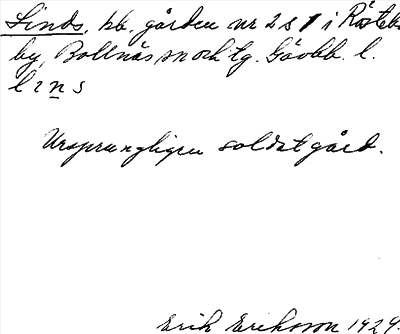 Linds, bb. gården nr 2 s 1 i Röste
by, Bollnäs sn och tg. Gävlb. l.
l i n s
Ursprungligen soldatgård.
Erik Erikson 1929.